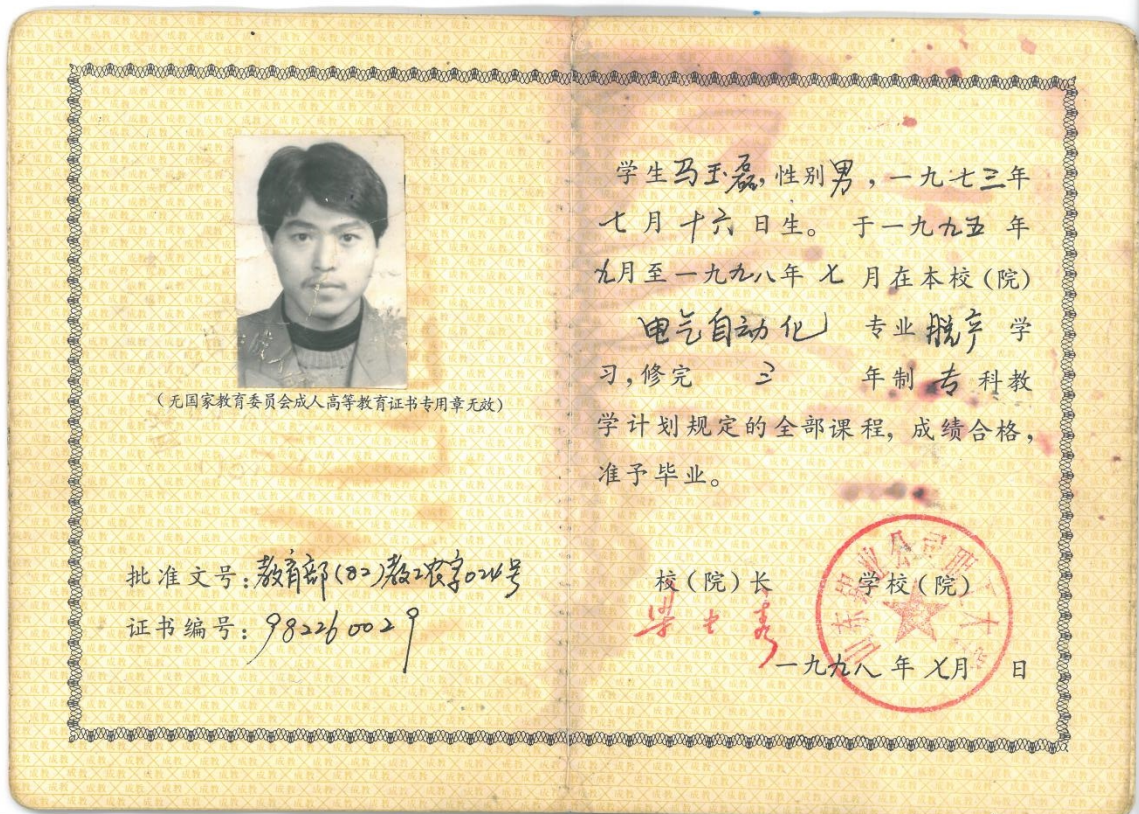 (无国家教育委员会成人高等教育证书专用章无效)
批准文号:教育部(82)教工农字024号
证书编号:982260029
学生马玉磊,性别男,一九七三年
七月十六日生。于一九九五年
九月至一九九八年七月在本校(院)
电气自动化 专业脱产学
习,修完 三 年制专科教
学计划规定的全部课程,成绩合格,
准予毕业。
校(院)长 学校(院)
一九九八年七月 日